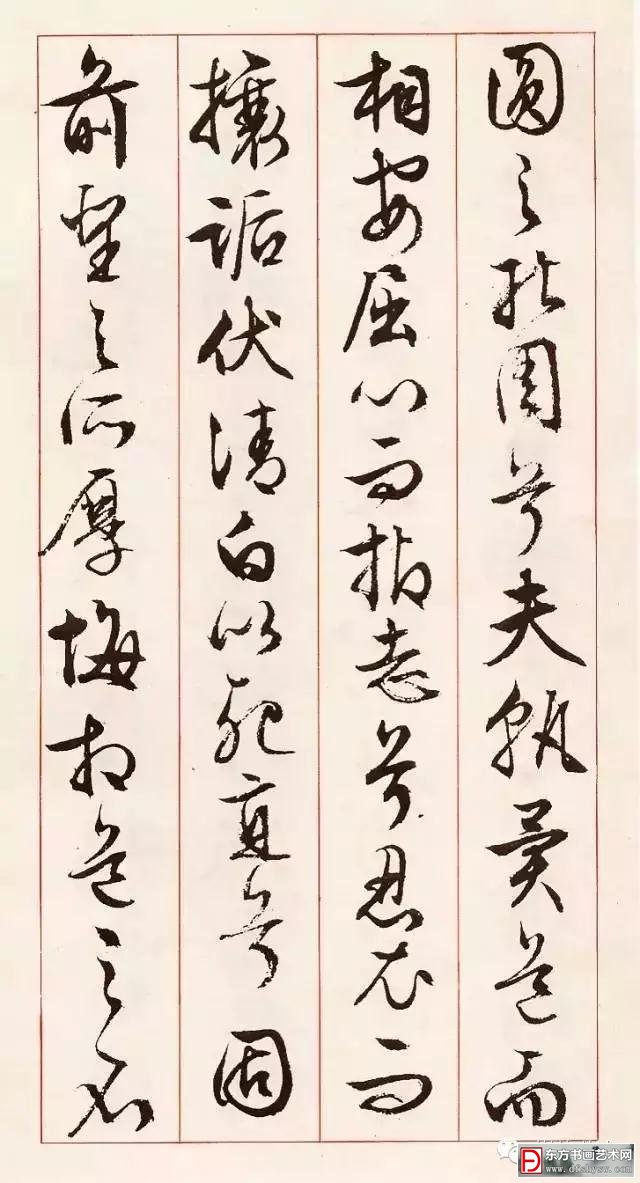 圓之能周兮夫孰異道而
相安屈心而抑志兮忍尤而
攘詬伏清白以死直兮固
前聖之所厚悔相道之不
东方书画艺术网